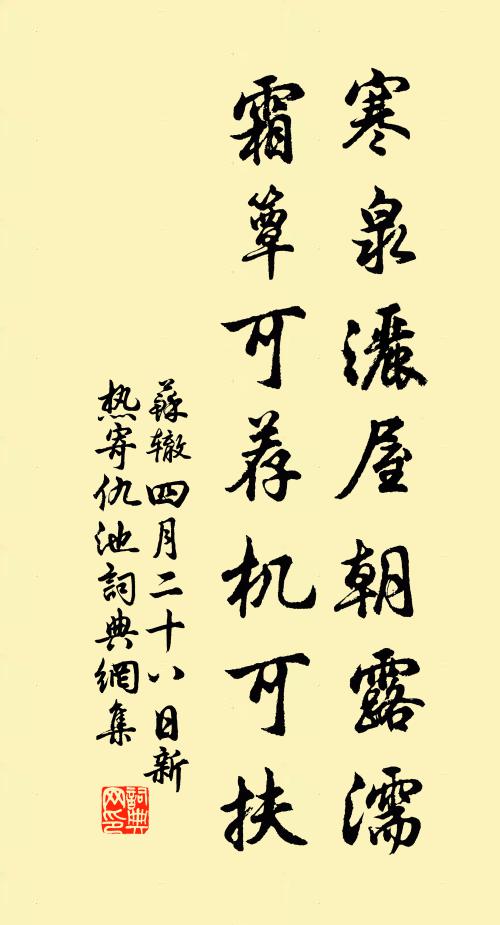 寒泉灑屋朝露濡
霜簟可荐机可扶
蘇辙四月二十八日新
热寄仇池詞典網集
詞典网印